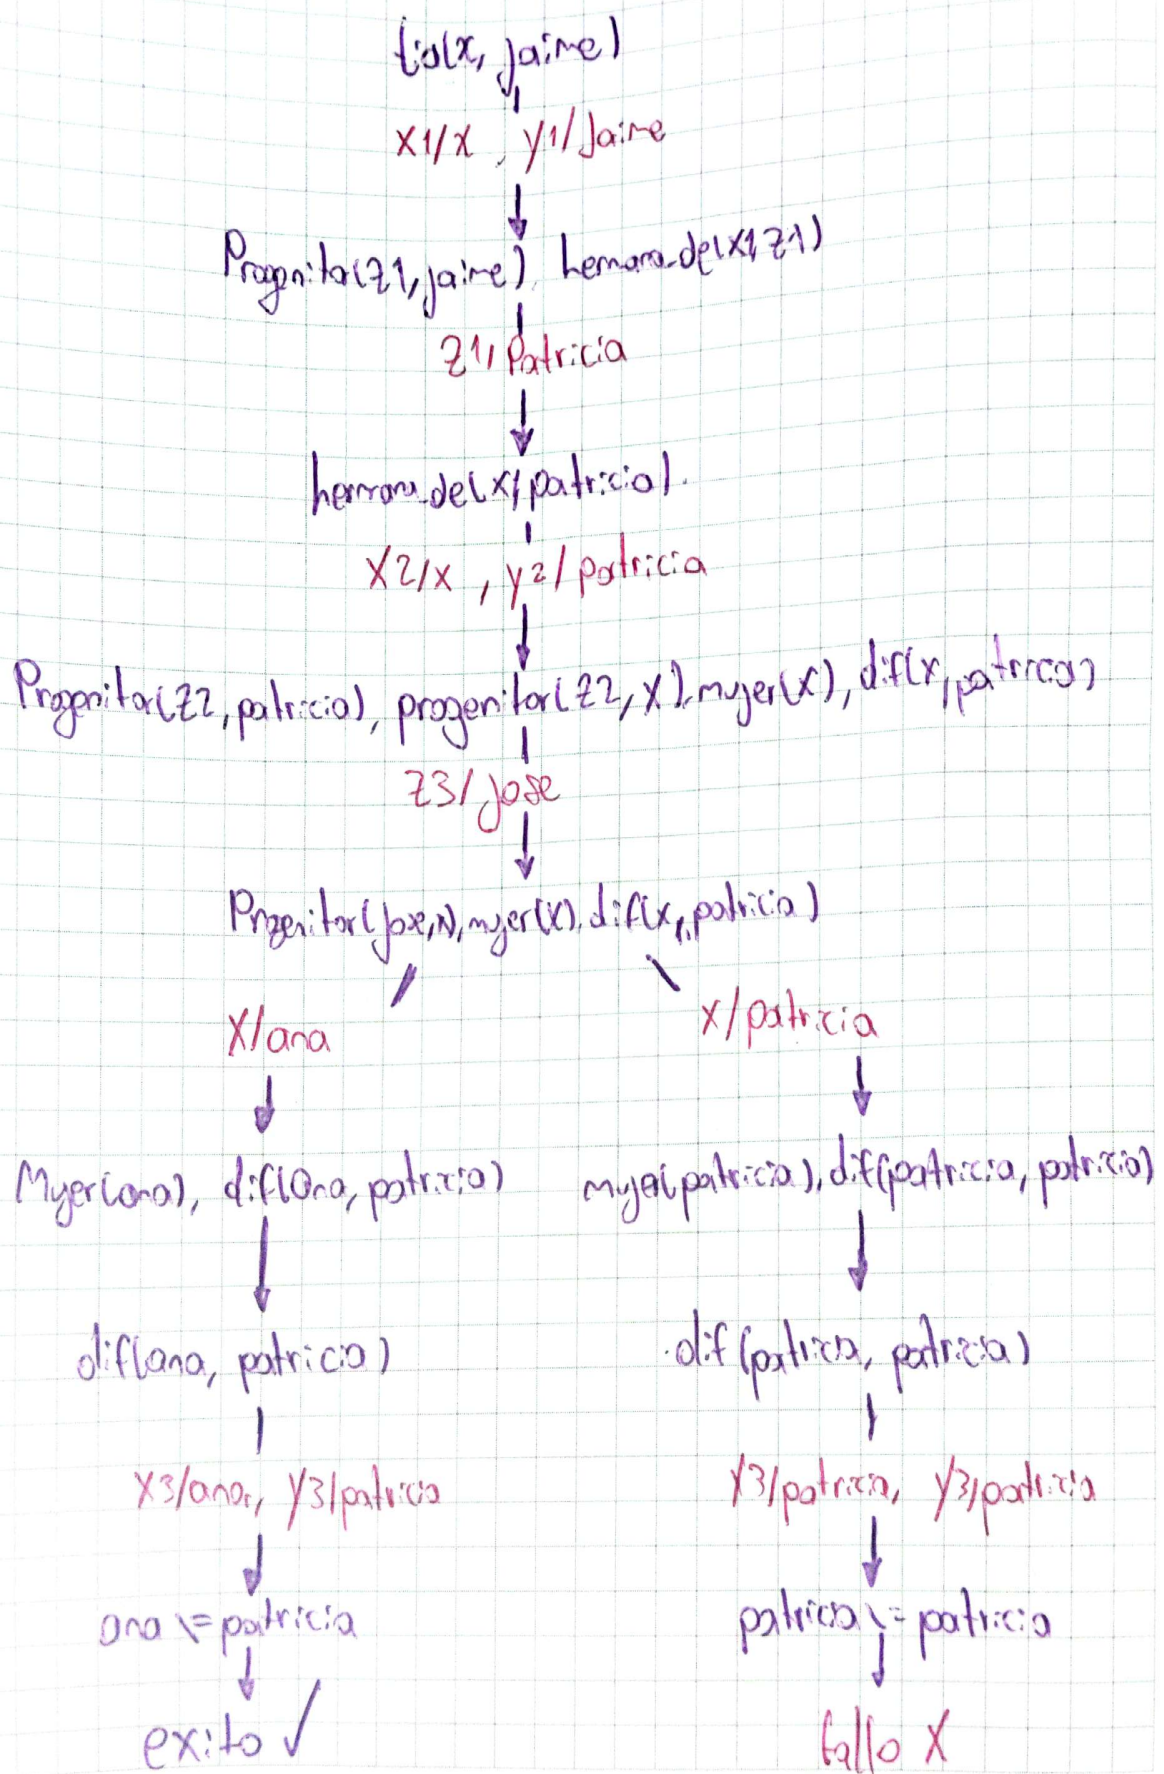 tio(x, jaime)
X1/X , y1/Jaime
Progenitor(Z1, jaime), hermana_de(X1, Z1)
Z1/Patricia
hermana_de(X, patricia).
X2/X , y2/patricia
Progenitor(Z2, patricia), progenitor(Z2, X), mujer(X), dif(x, patricia)
Z3/jose
Progenitor(jose, X), mujer(X), dif(x, patricia)
X/ana X/patricia
Mujer(ana), dif(ana, patricia) mujer(patricia), dif(patricia, patricia)
dif(ana, patricia) dif(patricia, patricia)
X3/ana, Y3/patricia X3/patricia, Y3/patricia
ana \= patricia patricia \= patricia
exito ✓ fallo X